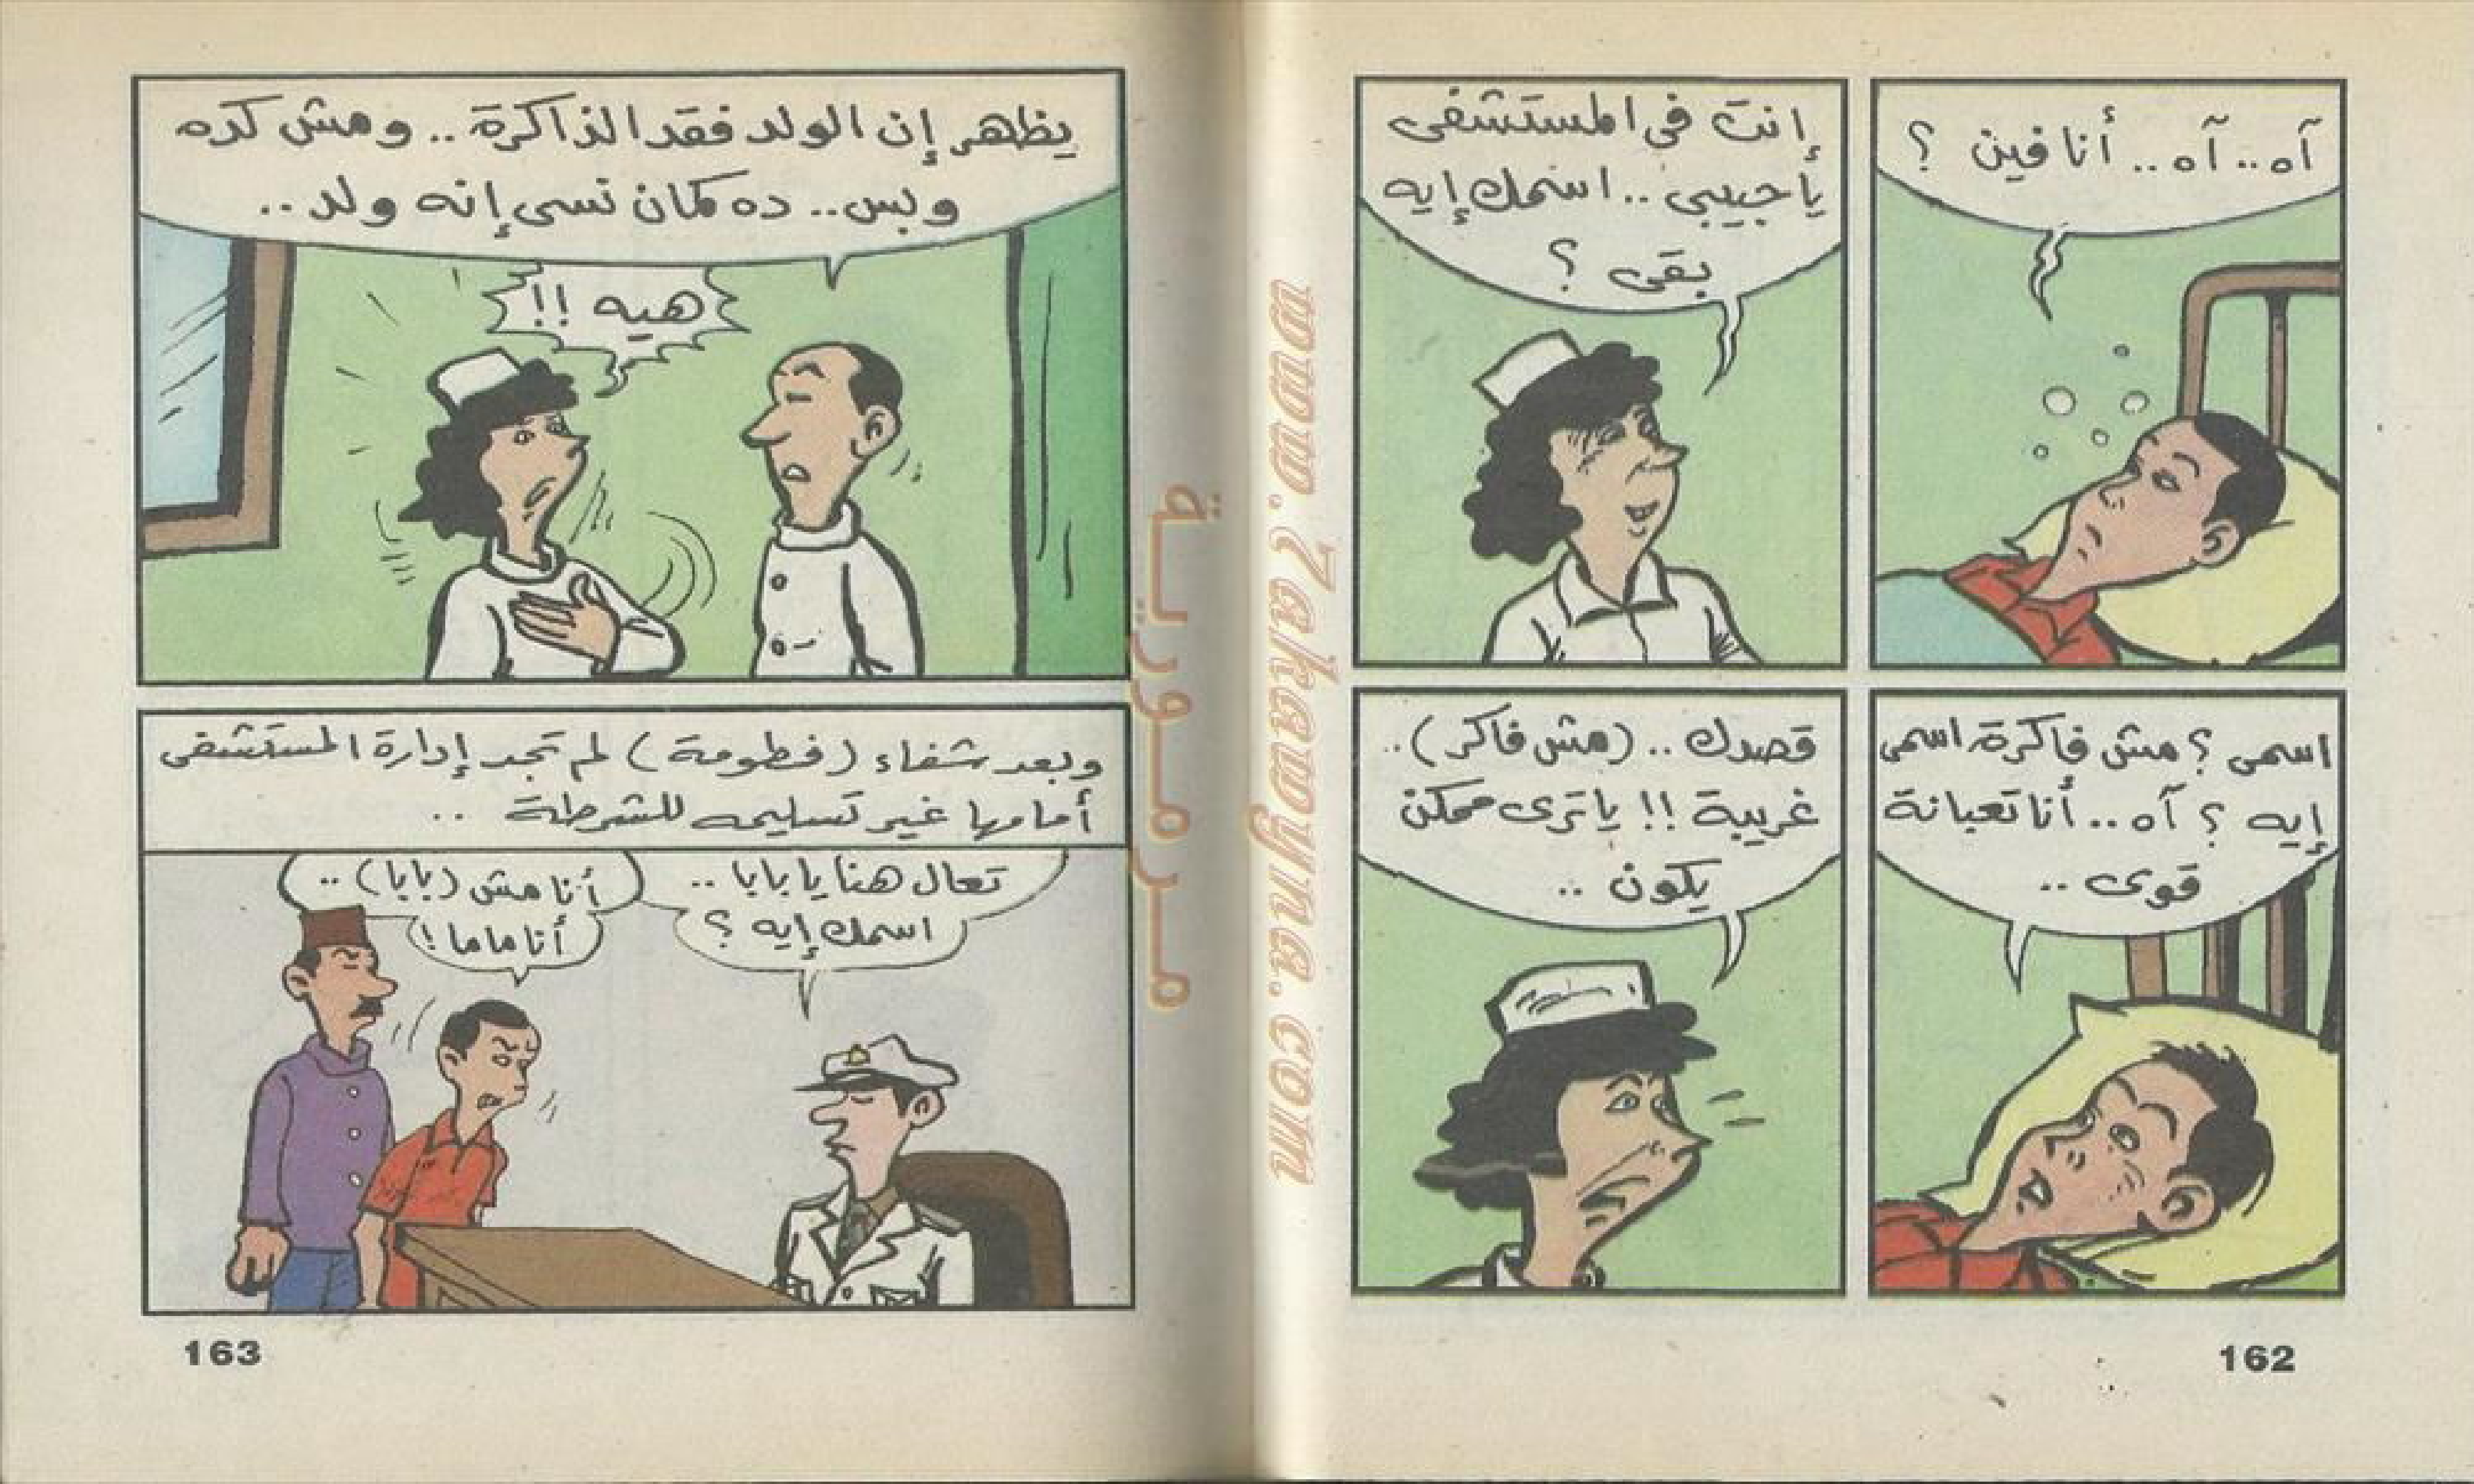 آه.. آه.. أنا فين ؟
إنت فى المستشفى
يا حبيبى.. اسمك إيه
بقى ؟
اسمى ؟ مش فاكرة اسمى
إيه ؟ آه.. أنا تعبانة
قوى ..
قصدك .. (مش فاكر) ..
غريبة !! يا ترى ممكن
يكون ..
162
يظهر إن الولد فقد الذاكرة .. ومش كده
وبس.. ده كمان نسى إنه ولد ..
هيه !!
وبعد شفاء (فطومة) لم تجد إدارة المستشفى
أمامها غير تسليمه للشرطة ..
تعال هنا يا بابا ..
اسمك إيه ؟
أنا مش (بابا) ..
أنا ماما !
163
مرمورية
www.7akawyna.com